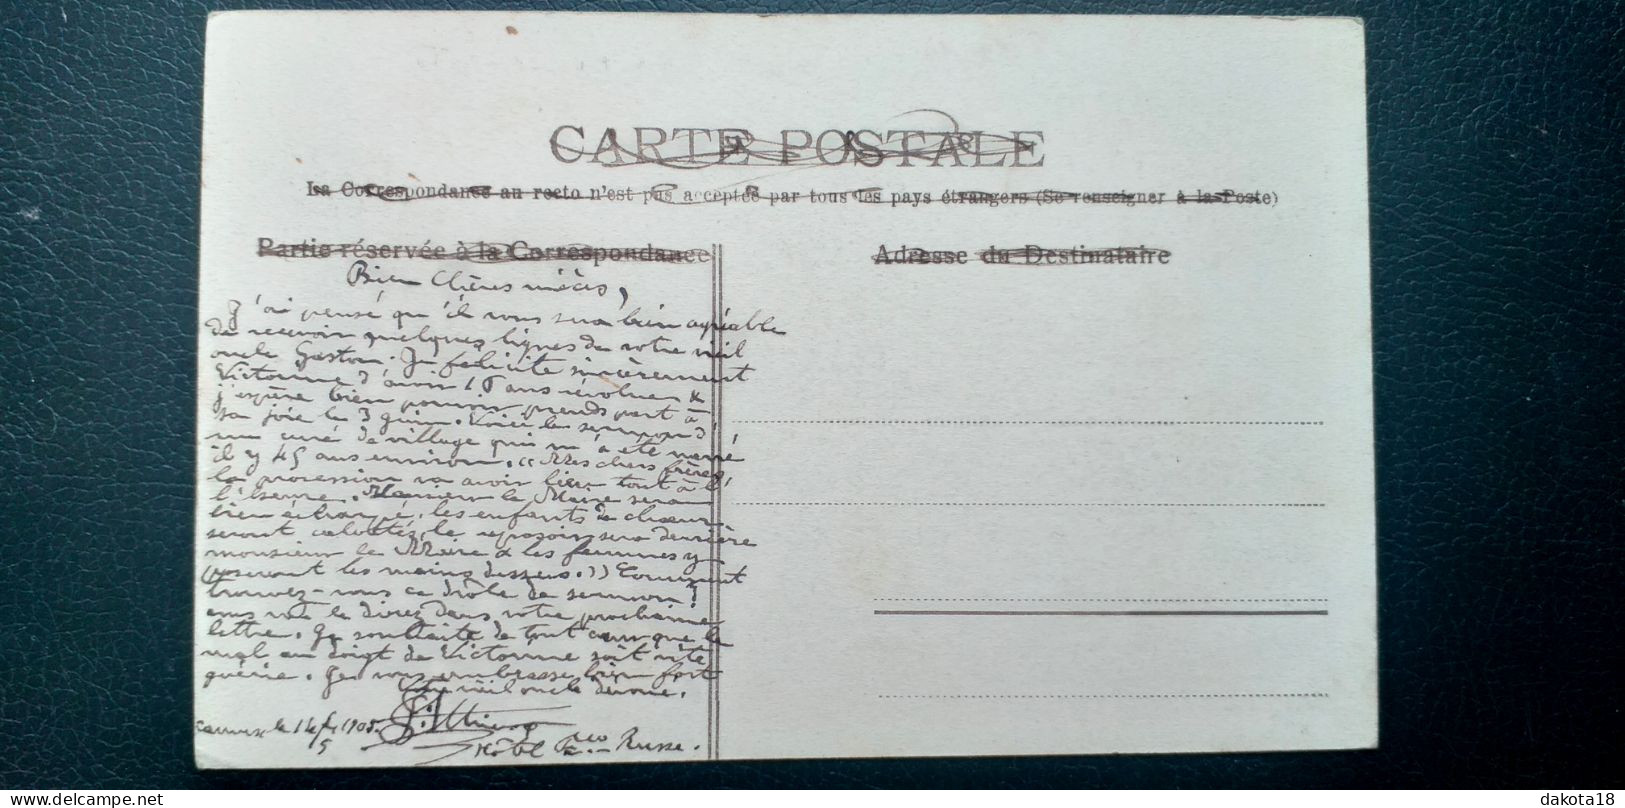 CARTE POSTALE
La Correspondance au recto n'est pas acceptée par tous les pays étrangers (Se renseigner à la Poste)
Partie réservée à la Correspondance
Adresse du Destinataire
Bien Chères nièces,
J'ai pensé qu'il vous sera bien agréable
de recevoir quelques lignes de votre vieil
oncle Gaston. Je félicite sincèrement
Victorine d'avoir ans révolus &
j'espère bien pouvoir prendre part à
sa joie le 3 juin. Voici le sermon d'
un curé de village qui m'a été narré
il y 45 ans environ. "Mes chers frères
la procession va avoir lieu tout à l'
heure. Monsieur le Maire sera
bien écharpé, les enfants de chœur
seront calottés, le reposoir sera derrière
monsieur le Maire & les femmes y
poseront les mains dessus." Comment
trouvez-vous ce drôle de sermon?
vous me le direz dans votre prochaine
lettre. Je souhaite de tout cœur que le
mal au doigt de Victorine soit vite
guérie. Je vous embrasse bien fort
Votre vieil oncle dévoué.
le 14 1905
Hôtel Russe.
dakota18